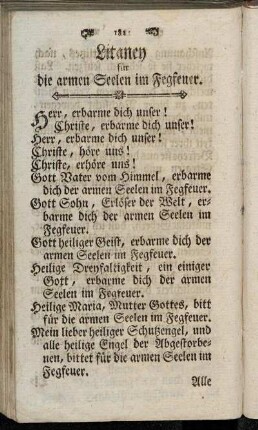 182
Litaney
für
die armen Seelen im Fegfeuer.
Herr, erbarme dich unser!
Christe, erbarme dich unser!
Herr, erbarme dich unser!
Christe, höre uns!
Christe, erhöre uns!
Gott Vater vom Himmel, erbarme
dich der armen Seelen im Fegfeuer.
Gott Sohn, Erlöser der Welt, er-
barme dich der armen Seelen im
Fegfeuer.
Gott heiliger Geist, erbarme dich der
armen Seelen im Fegfeuer.
Heilige Dreyfaltigkeit, ein einiger
Gott, erbarme dich der armen
Seelen im Fegfeuer.
Heilige Maria, Mutter Gottes, bitt
für die armen Seelen im Fegfeuer.
Mein lieber heiliger Schutzengel, und
alle heilige Engel der Abgestorbe-
nen, bittet für die armen Seelen im
Fegfeuer.
Alle